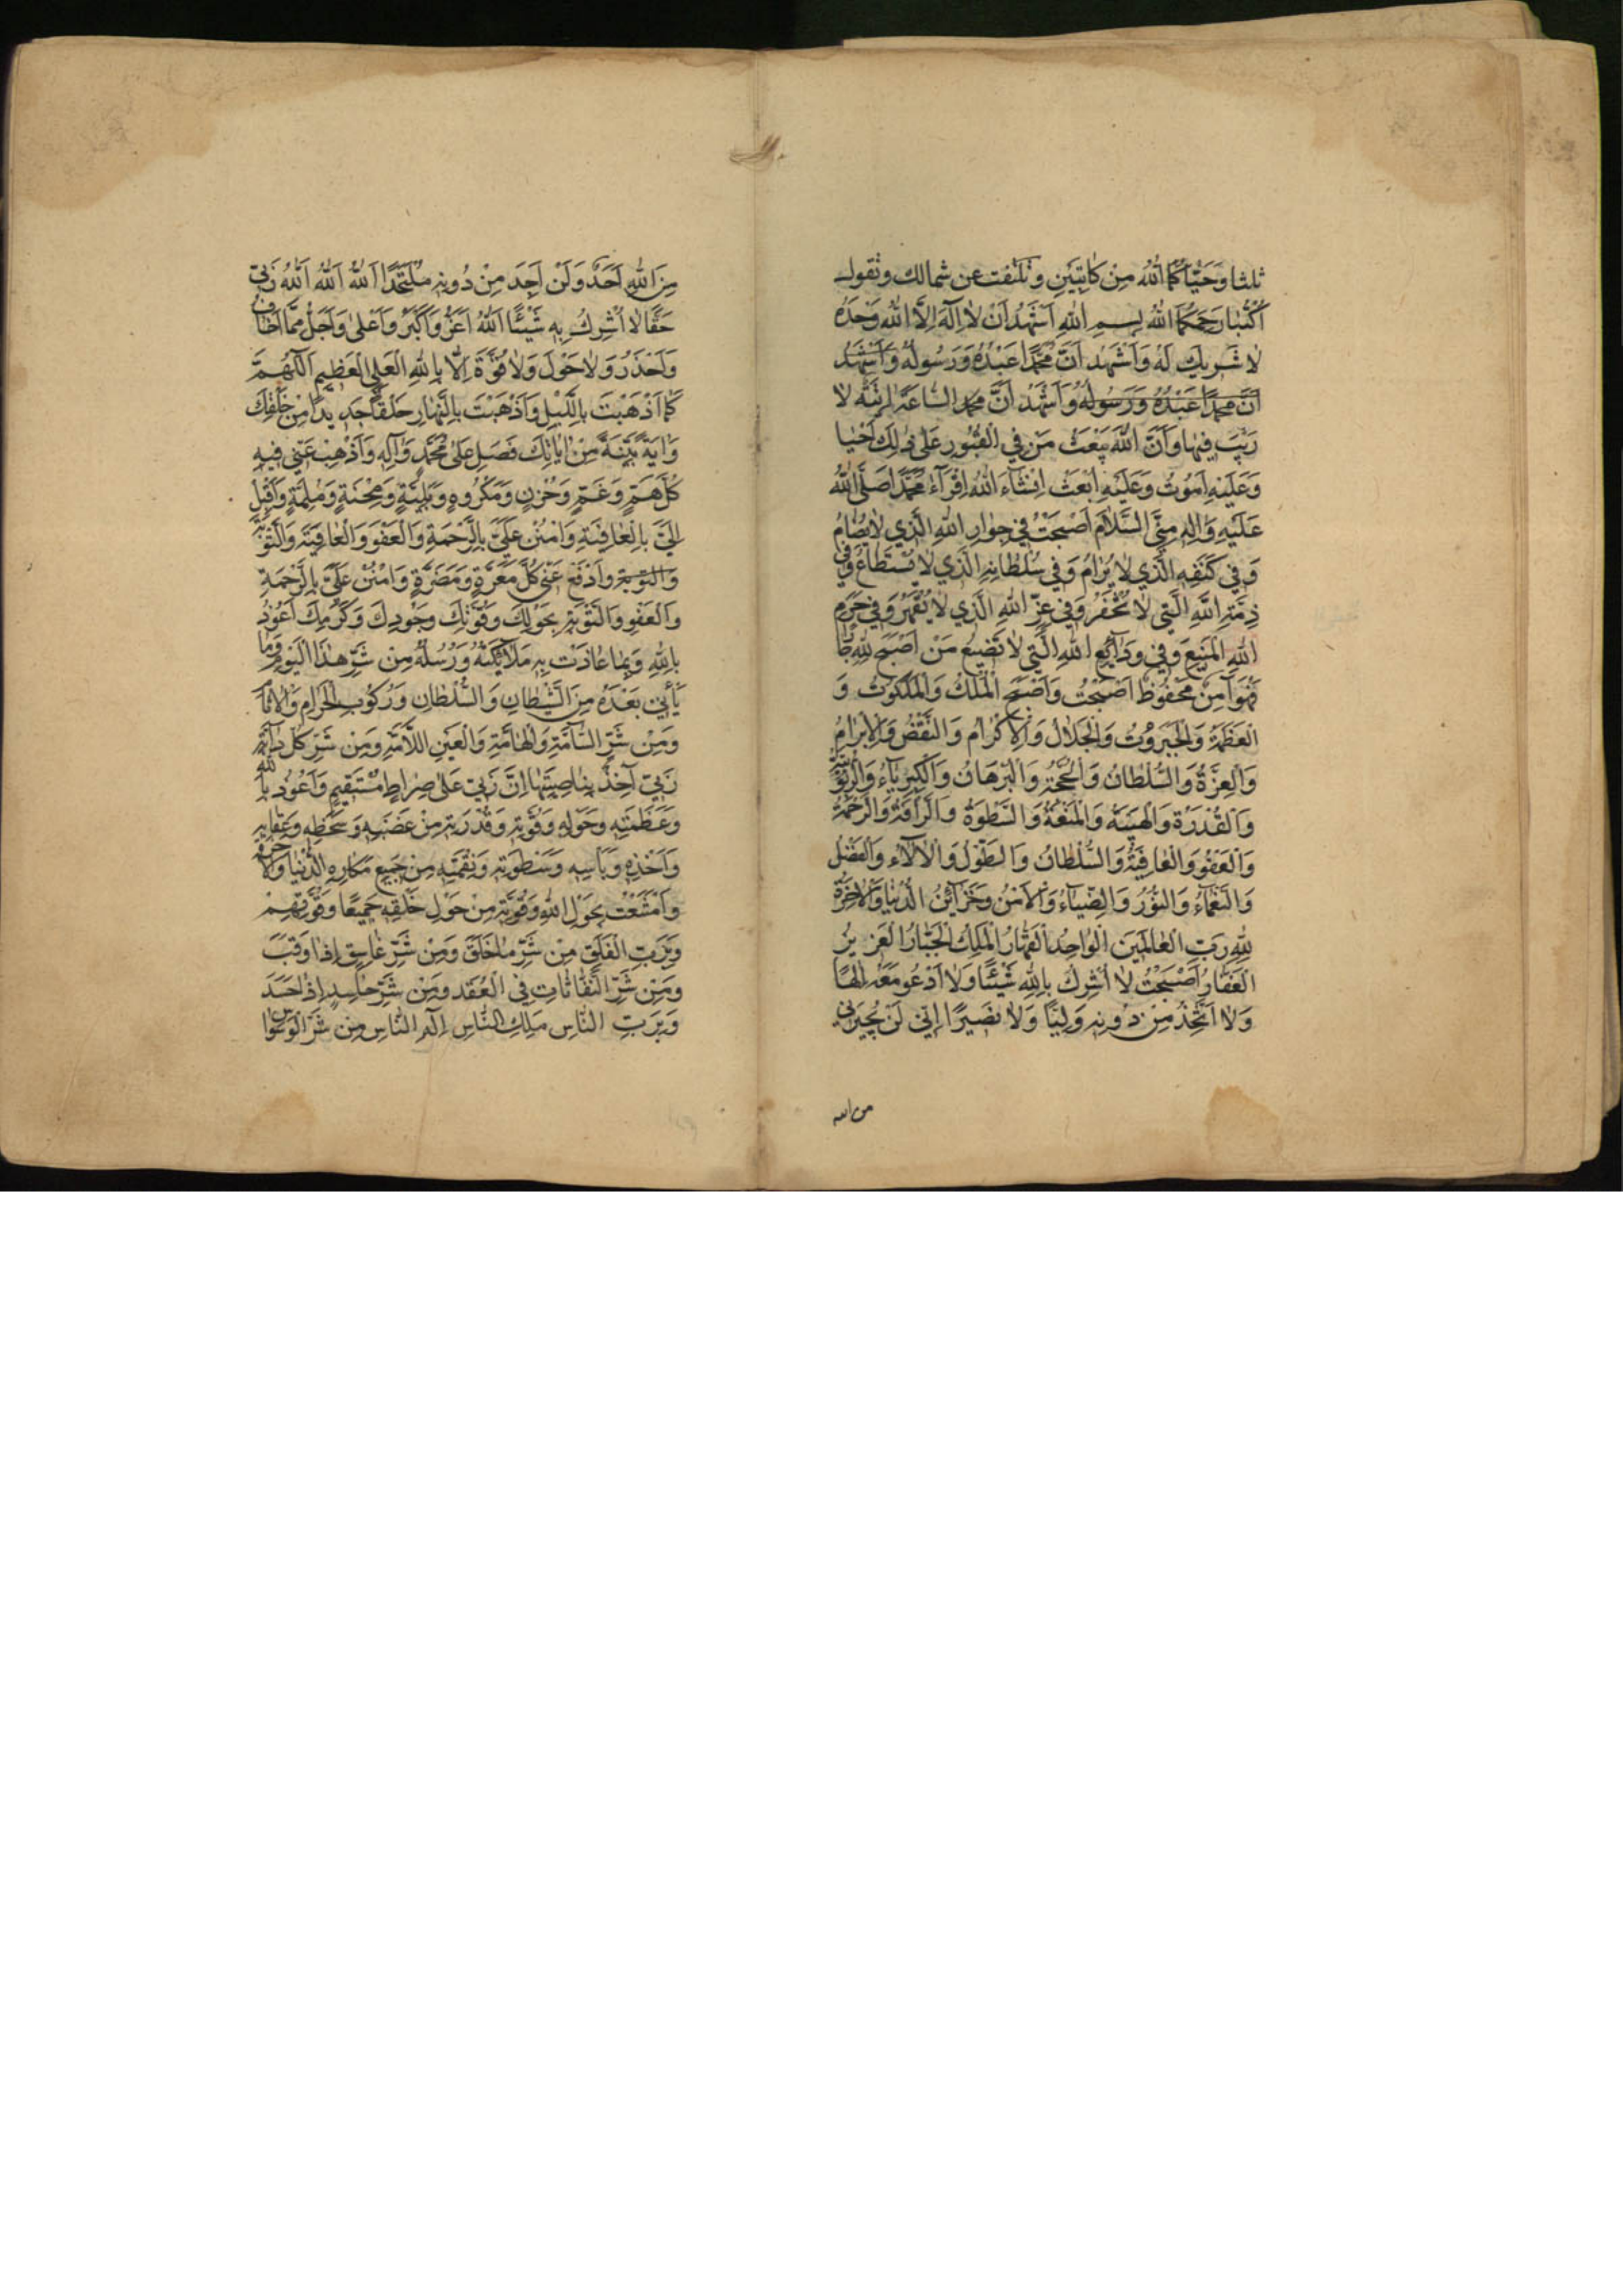 ثلثا وَحَيّاكُمَا اللّٰهُ مِنْ كَاتِبَيْنِ وتلتفت عن شمالك وتقول
اُكْتُبَا رَحِمَكُمَا اللّٰهُ بِسْمِ اللّٰهِ اَشْهَدُ اَنْ لا اِلٰهَ اِلَّا اللّٰهُ وَحْدَهُ
لا شَرِيكَ لَهُ وَاَشْهَدُ اَنَّ مُحَمَّدًا عَبْدُهُ وَرَسُولُهُ وَاَشْهَدُ
اَنَّ مُحَمَّدًا عَبْدُهُ وَرَسُولُهُ وَاَشْهَدُ اَنَّ السَّاعَةَ اٰتِيَةٌ لا
رَيْبَ فِيهَا وَاَنَّ اللّٰهَ يَبْعَثُ مَنْ فِي الْقُبُورِ عَلٰى ذٰلِكَ اَحْيَا
وَعَلَيْهِ اَمُوتُ وَعَلَيْهِ اُبْعَثُ اِنْشَاءَ اللّٰهُ اِقْرَآءْ مُحَمَّدًا صَلَّى اللّٰهُ
عَلَيْهِ وَاٰلِهِ مِنِّي السَّلَامَ اَصْبَحْتُ فِي جِوَارِ اللّٰهِ الَّذِي لا يُضَامُ
وَفِي كَنَفِهِ الَّذِي لا يُرَامُ وَفِي سُلْطَانِهِ الَّذِي لا يُسْتَطَاعُ وَفِي
ذِمَّةِ اللّٰهِ الَّتِي لا تُخْفَرُ وَفِي عِزِّ اللّٰهِ الَّذِي لا يُقْهَرُ وَفِي حَرَمِ
اللّٰهِ الْمَنِيعِ وَفِي وَدَائِعِ اللّٰهِ الَّتِي لا تَضِيعُ مَنْ اَصْبَحَ لِلّٰهِ جَارًا
فَهُوَ اٰمِنٌ مَحْفُوظٌ اَصْبَحْتُ وَاَصْبَحَ الْمُلْكُ وَالْمَلَكُوتُ وَ
الْعَظَمَةُ وَالْجَبَرُوتُ وَالْجَلَالُ وَالْاِكْرَامُ وَالنَّقْضُ وَالْاِبْرَامُ
وَالْعِزَّةُ وَالسُّلْطَانُ وَالْحُجَّةُ وَالْبُرْهَانُ وَالْكِبْرِيَاءُ وَالرُّبُوبِيَّةُ
وَالْقُدْرَةُ وَالْهَيْبَةُ وَالْمَنْعَةُ وَالسَّطْوَةُ وَالرَّأْفَةُ وَالرَّحْمَةُ
وَالْعَفْوُ وَالْعَافِيَةُ وَالسُّلْطَانُ وَالطَّوْلُ وَالْاٰلَاءُ وَالْفَضْلُ
وَالنَّعْمَاءُ وَالنُّوْرُ وَالضِّيَاءُ وَالْاَمْنُ وَخَزَائِنُ الدُّنْيَا وَالْاٰخِرَةِ
لِلّٰهِ رَبِّ الْعَالَمِينَ الْوَاحِدِ الْقَهَّارِ الْمَلِكِ الْجَبَّارِ الْعَزِيزِ
الْغَفَّارِ اَصْبَحْتُ لا اُشْرِكُ بِاللّٰهِ شَيْئًا وَلَا اَدْعُو مَعَهُ اِلٰهًا
وَلَا اَتَّخِذُ مِنْ دُونِهِ وَلِيًّا وَلَا نَصِيرًا اِنِّي لَنْ يُجِيرَنِي
من الله
مِنَ اللّٰهِ اَحَدٌ وَلَنْ اَجِدَ مِنْ دُونِهِ مُلْتَحَدًا اَللّٰهُ اَللّٰهُ اَللّٰهُ رَبِّي
حَقًّا لا اُشْرِكُ بِهِ شَيْئًا اَللّٰهُ اَعَزُّ وَاَكْبَرُ وَاَعْلٰى وَاَجَلُّ مِمَّا اَخَافُ
وَاَحْذَرُ وَلَا حَوْلَ وَلَا قُوَّةَ اِلَّا بِاللّٰهِ الْعَلِيِّ الْعَظِيمِ اَللّٰهُمَّ
كَمَا اَذْهَبْتَ بِاللَّيْلِ وَاَذْهَبْتَ بِالنَّهَارِ خَلْقًا جَدِيدًا مِنْ خَلْقِكَ
وَاٰيَةً بَيِّنَةً مِنْ اٰيَاتِكَ فَصَلِّ عَلٰى مُحَمَّدٍ وَاٰلِهِ وَاَذْهِبْ عَنِّي فِيهِ
كُلَّ هَمٍّ وَغَمٍّ وَحُزْنٍ وَمَكْرُوهٍ وَبَلِيَّةٍ وَمِحْنَةٍ وَمُلِمَّةٍ وَاَقْبِلْ
اِلَيَّ بِالْعَافِيَةِ وَامْنُنْ عَلَيَّ بِالرَّحْمَةِ وَالْعَفْوِ وَالْعَافِيَةِ وَالتَّوْبَةِ
وَالتَّوْبَةِ وَادْفَعْ عَنِّي كُلَّ مَعَرَّةٍ وَمَضَرَّةٍ وَامْنُنْ عَلَيَّ بِالرَّحْمَةِ
وَالْعَفْوِ وَالتَّوْبَةِ بِحَوْلِكَ وَقُوَّتِكَ وَجُودِكَ وَكَرَمِكَ اَعُوذُ
بِاللّٰهِ وَبِمَا عَاذَتْ بِهِ مَلَائِكَتُهُ وَرُسُلُهُ مِنْ شَرِّ هٰذَا الْيَوْمِ وَمَا
يَأْتِي بَعْدَهُ مِنَ الشَّيْطَانِ وَالسُّلْطَانِ وَرُكُوبِ الْحَرَامِ وَالْاٰثَامِ
وَمِنْ شَرِّ السَّامَّةِ وَالْهَامَّةِ وَالْعَيْنِ اللَّامَّةِ وَمِنْ شَرِّ كُلِّ دَابَّةٍ
رَبِّي اٰخِذٌ بِنَاصِيَتِهَا اِنَّ رَبِّي عَلٰى صِرَاطٍ مُسْتَقِيمٍ وَاَعُوذُ بِاللّٰهِ
وَعَظَمَتِهِ وَحَوْلِهِ وَقُوَّتِهِ وَقُدْرَتِهِ مِنْ غَضَبِهِ وَسَخَطِهِ وَعِقَابِهِ
وَاَخْذِهِ وَبَأْسِهِ وَسَطْوَتِهِ وَنِقْمَتِهِ مِنْ جَمِيعِ مَكَارِهِ الدُّنْيَا وَالْاٰخِرَةِ
وَامْتَنَعْتُ بِحَوْلِ اللّٰهِ وَقُوَّتِهِ مِنْ حَوْلِ خَلْقِهِ جَمِيعًا وَقُوَّتِهِمْ
وَبِرَبِّ الْفَلَقِ مِنْ شَرِّ مَا خَلَقَ وَمِنْ شَرِّ غَاسِقٍ اِذَا وَقَبَ
وَمِنْ شَرِّ النَّفَّاثَاتِ فِي الْعُقَدِ وَمِنْ شَرِّ حَاسِدٍ اِذَا حَسَدَ
وَبِرَبِّ النَّاسِ مَلِكِ النَّاسِ اِلٰهِ النَّاسِ مِنْ شَرِّ الْوَسْوَاسِ